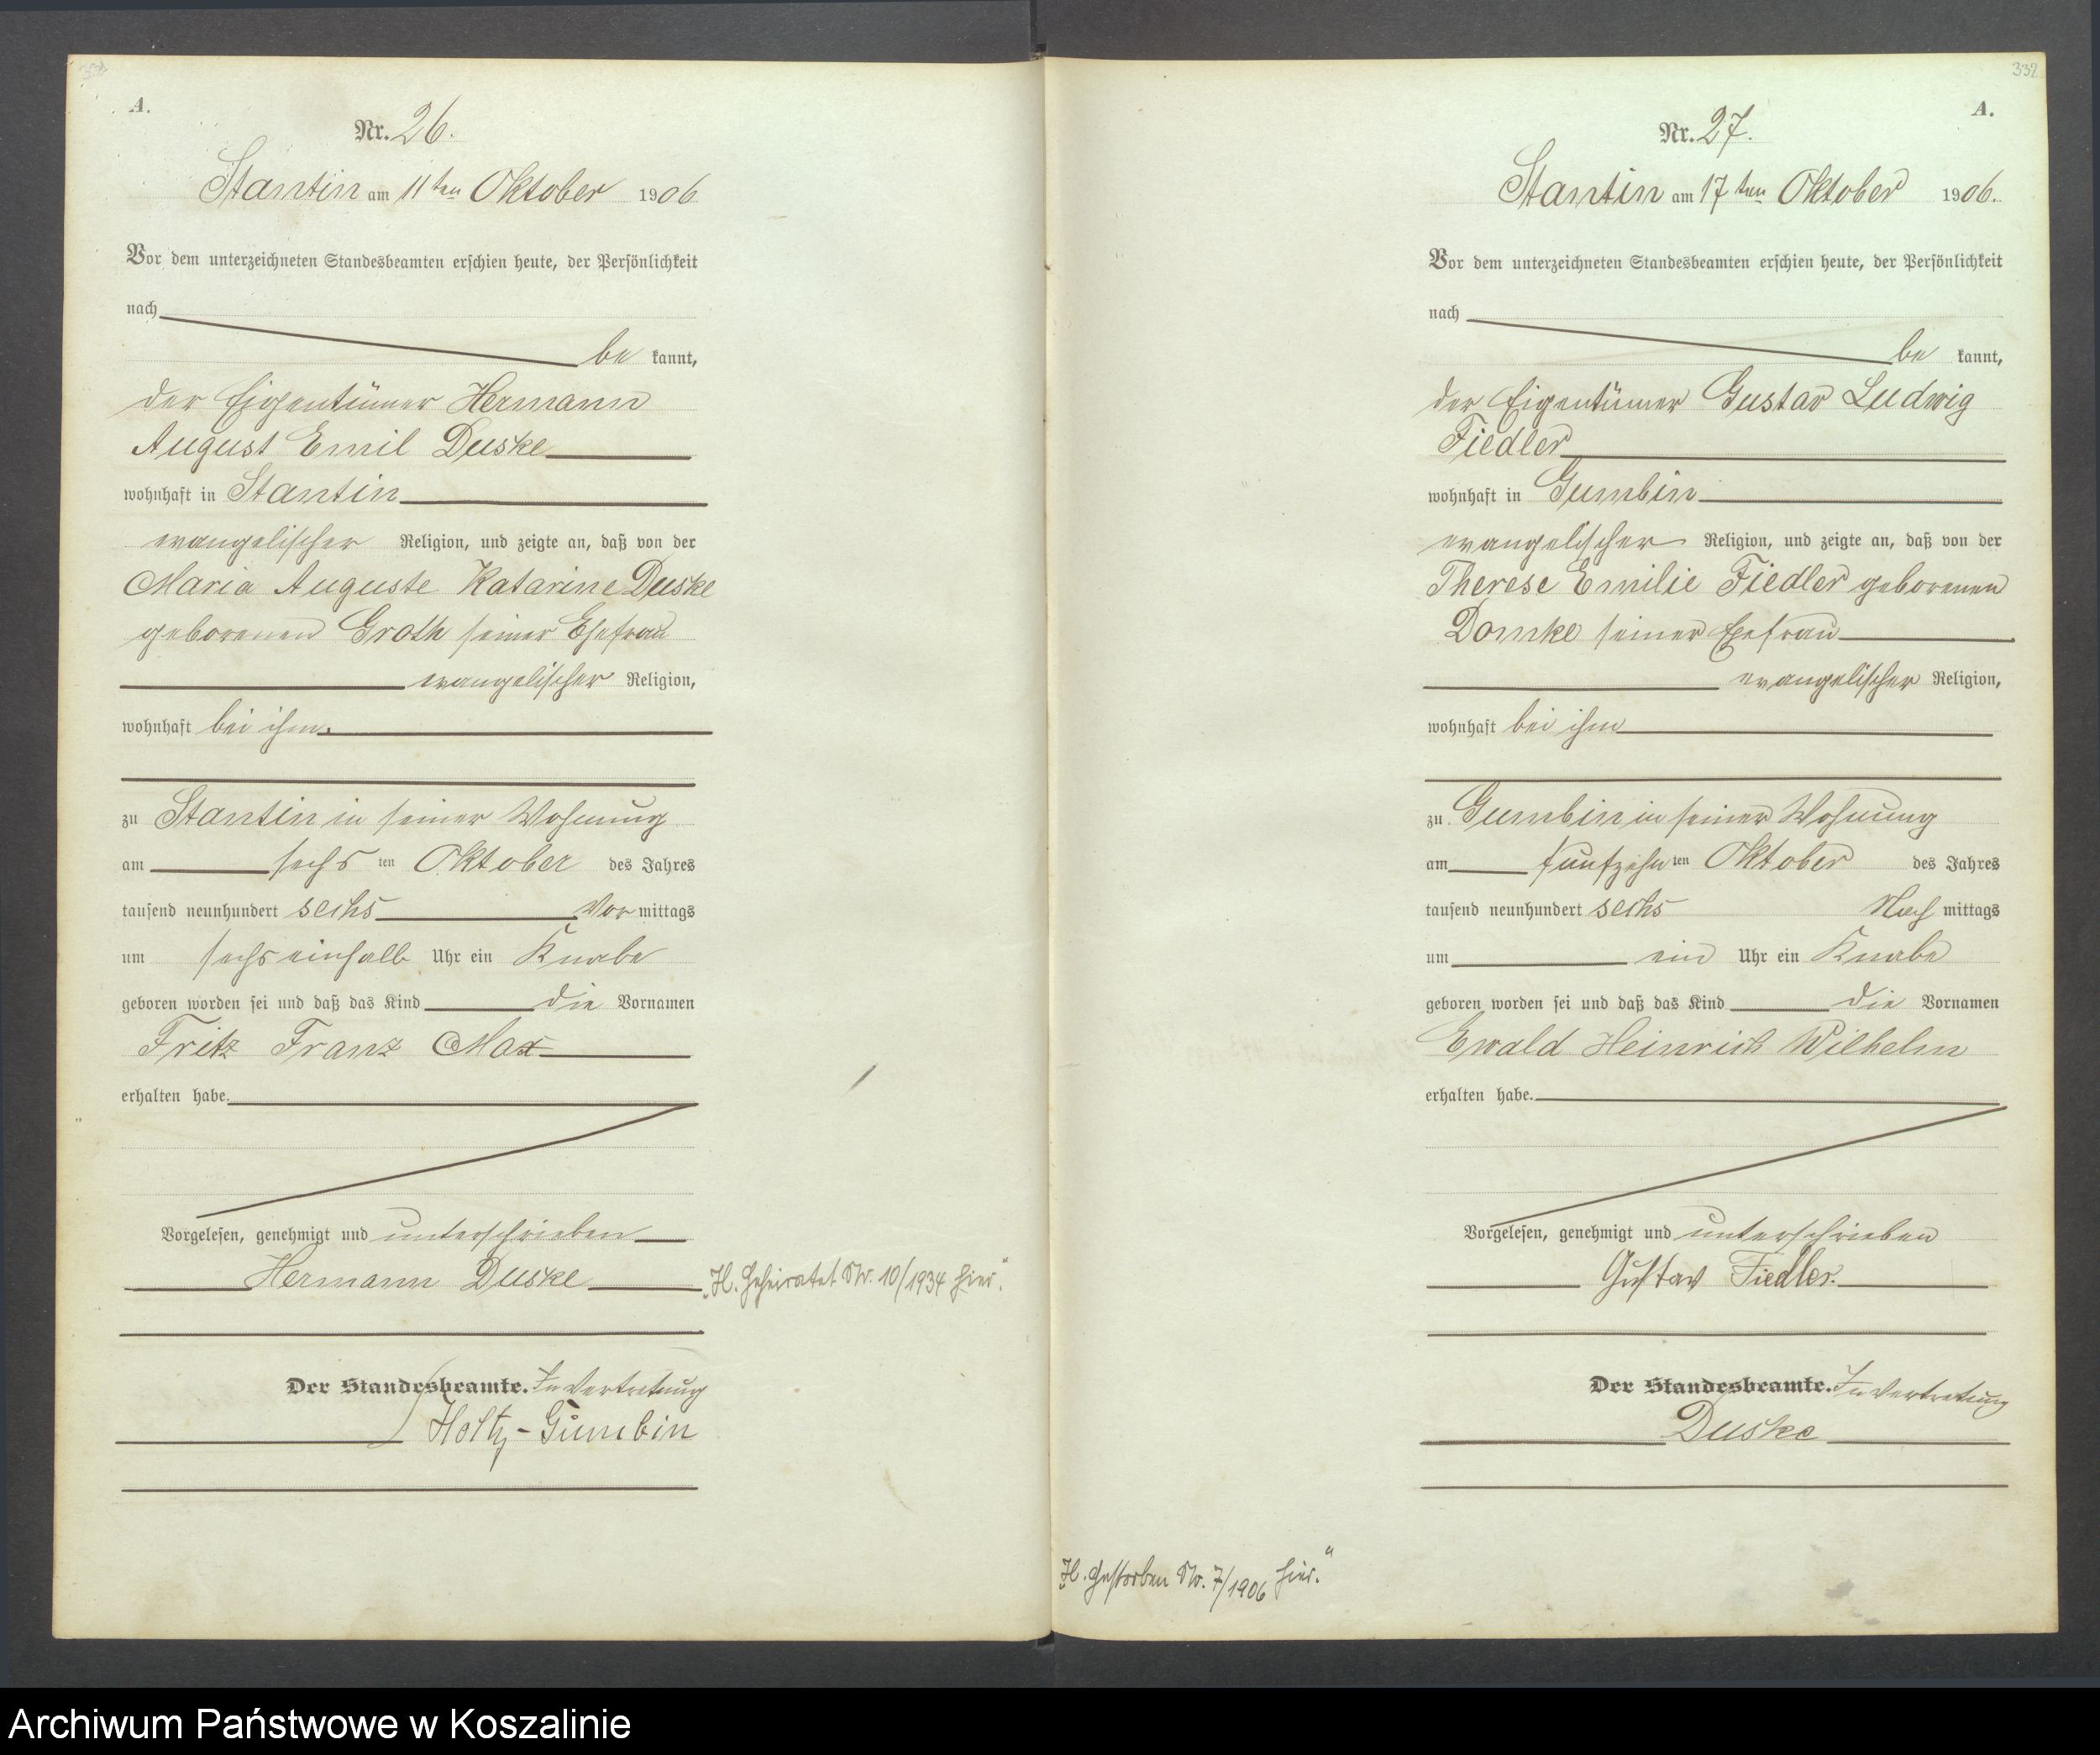 A.
Nr. 26.
Stantin am 11ten Oktober 1906
Vor dem unterzeichneten Standesbeamten erschien heute, der Persönlichkeit
nach
be kannt,
der Eigentümer Hermann
August Emil Duske
wohnhaft in Stantin
evangelischer Religion, und zeigte an, daß von der
Maria Auguste Katarine Duske
geborenen Groth seiner Ehefrau
evangelischer Religion,
wohnhaft bei ihm.
zu Stantin in seiner Wohnung
am sechs ten Oktober des Jahres
tausend neunhundert sechs Vor mittags
um sechs einhalb Uhr ein Knabe
geboren worden sei und daß das Kind die Vornamen
Fritz Franz Max
erhalten habe.
Vorgelesen, genehmigt und unterschrieben
Hermann Duske
„H. Geheiratet Nr. 10/1934 hier.“
Der Standesbeamte. In Vertretung
Holtz-Gumbin
332
A.
Nr. 27.
Stantin am 17ten Oktober 1906.
Vor dem unterzeichneten Standesbeamten erschien heute, der Persönlichkeit
nach
be kannt,
der Eigentümer Gustav Ludwig
Fiedler
wohnhaft in Gumbin
evangelischer Religion, und zeigte an, daß von der
Therese Emilie Fiedler geborenen
Domke seiner Ehefrau
evangelischer Religion,
wohnhaft bei ihm
zu Gumbin in seiner Wohnung
am fünfzehn ten Oktober des Jahres
tausend neunhundert sechs Nach mittags
um ein Uhr ein Knabe
geboren worden sei und daß das Kind die Vornamen
Ewald Heinrich Wilhelm
erhalten habe.
Vorgelesen, genehmigt und unterschrieben
Gustav Fiedler.
Der Standesbeamte. In Vertretung
Duske
„H. Gestorben Nr. 7/1906 hier.“
Archiwum Państwowe w Koszalinie